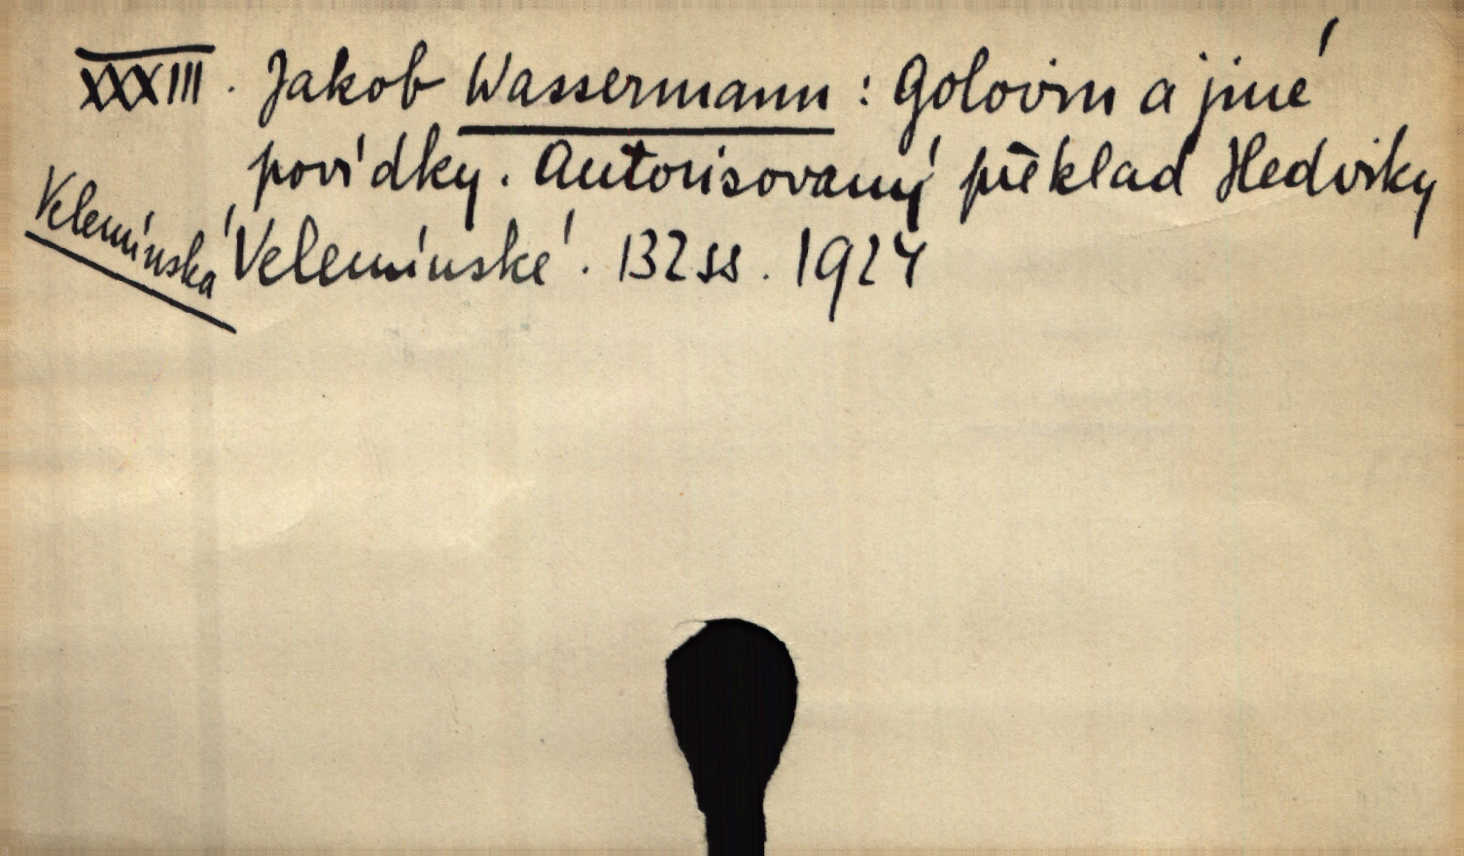 XXXIII. Jakob Wassermann: Golovin a jiné
povídky. Autorisovaný překlad Hedviky
Velemínská
Velemínské. 132 ss. 1924